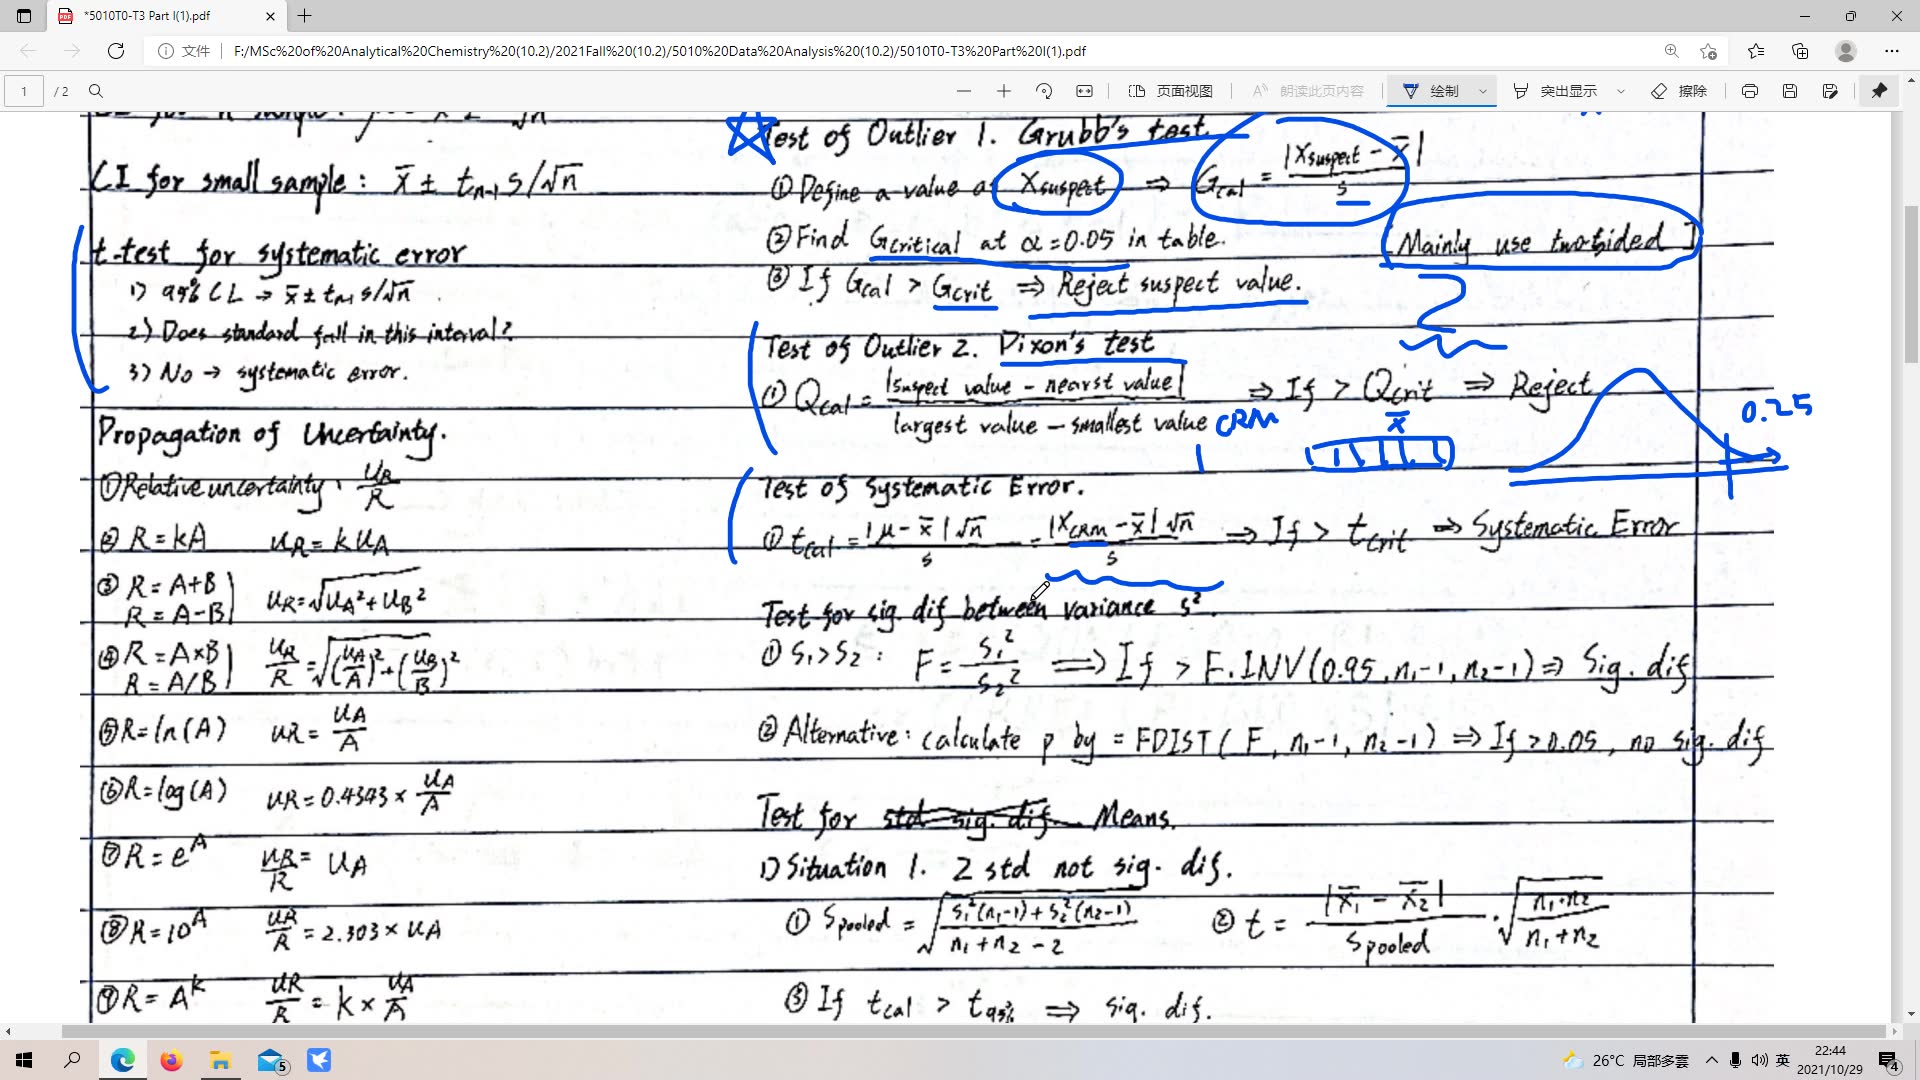 *5010T0-T3 Part I(1).pdf
文件
F:/MSc%20of%20Analytical%20Chemistry%20(10.2)/2021Fall%20(10.2)/5010%20Data%20Analysis%20(10.2)/5010T0-T3%20Part%20I(1).pdf
1 / 2
页面视图
朗读此页内容
绘制
突出显示
擦除
CI for small sample: x̄ ± tn-1 s/√n
t-test for systematic error
1) 95% CL → x̄ ± tn-1 s/√n
2) Does standard fall in this interval?
3) No → systematic error.
Propagation of Uncertainty.
① Relative uncertainty: uR/R
② R = kA uR = k uA
③ R = A+B
R = A-B uR = √(uA² + uB²)
④ R = A×B
R = A/B uR/R = √((uA/A)² + (uB/B)²)
⑤ R = ln(A) uR = uA/A
⑥ R = log(A) uR = 0.4343 × uA/A
⑦ R = e^A uR/R = uA
⑧ R = 10^A uR/R = 2.303 × uA
⑨ R = A^k uR/R = k × uA/A
Test of Outlier 1. Grubb's test
① Define a value as Xsuspect ⇒ Gcal = |Xsuspect - x̄| / s
② Find Gcritical at α = 0.05 in table. [Mainly use two-sided]
③ If Gcal > Gcrit ⇒ Reject suspect value.
Test of Outlier 2. Dixon's test
① Qcal = |suspect value - nearst value| / largest value - smallest value ⇒ If > Qcrit ⇒ Reject
0.25
CRM
x̄
Test of Systematic Error.
① tcal = |μ - x̄|√n / s = |XCRM - x̄|√n / s ⇒ If > tcrit ⇒ Systematic Error
Test for sig. dif between variance s².
① S₁ > S₂: F = S₁²/S₂² ⇒ If > F.INV(0.95, n₁-1, n₂-1) ⇒ Sig. dif
② Alternative: calculate p by = FDIST(F, n₁-1, n₂-1) ⇒ If > 0.05, no sig. dif
Test for std sig. dif Means.
1) Situation 1. 2 std not sig. dif.
① Spooled = √((S₁²(n₁-1) + S₂²(n₂-1)) / (n₁+n₂-2)) ② t = |x̄₁ - x̄₂| / Spooled · √(n₁·n₂ / (n₁+n₂))
③ If tcal > t95% ⇒ sig. dif.
5
26°C 局部多雲
英
22:44
2021/10/29
4